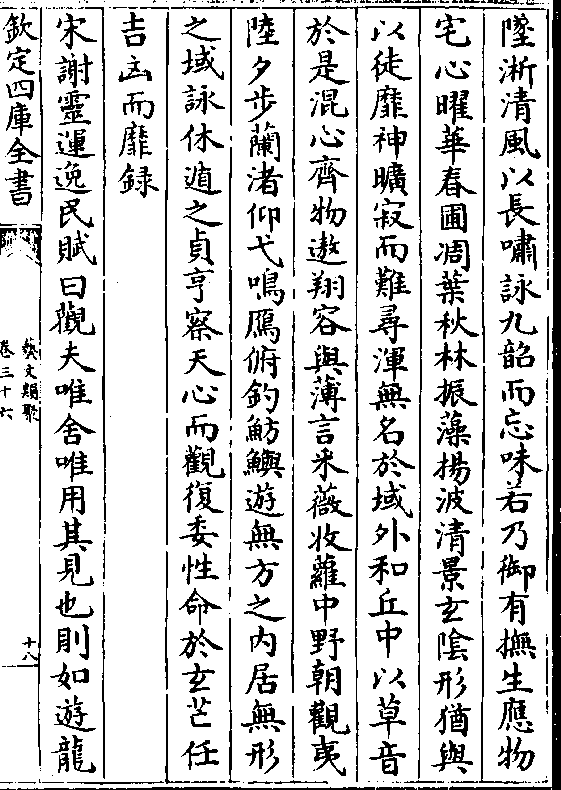 墜淅清風以長嘯詠九韶而忘味若乃御有撫生應物
宅心曜華春圃凋葉秋林振藻揚波清景玄陰形猶與
以徒靡神曠寂而難尋渾無名於域外和丘中以草音
於是混心齊物遨翔容與薄言采薇收蘿中野朝觀夷
陸夕步蘭渚仰弋鳴鴈俯釣魴鱮遊無方之內居無形
之域詠休遁之貞亨察天心而觀復委性命於玄芒任
吉凶而靡録
宋謝靈運逸民賦曰觀夫唯舍唯用其見也則如遊龍
欽定四庫全書
藝文類聚
卷三十六
十八